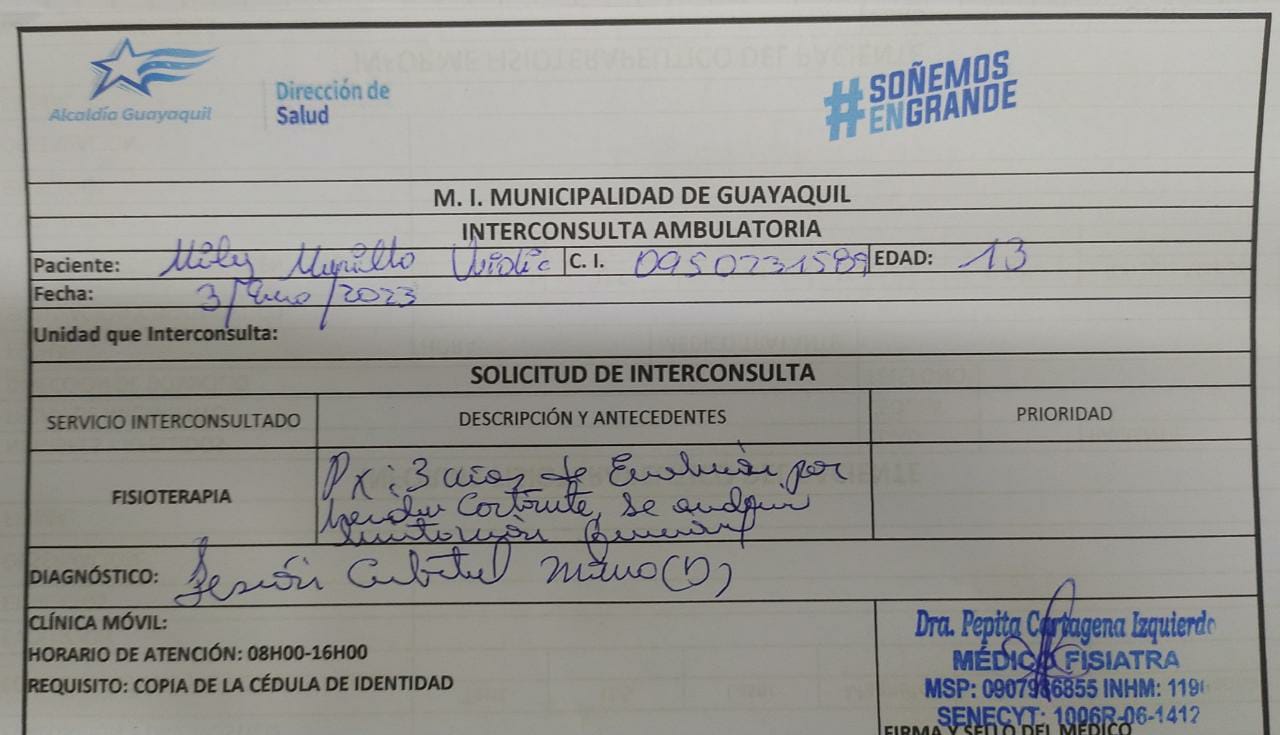 Alcaldía Guayaquil
Dirección de
Salud
#SOÑEMOS
ENGRANDE
M. I. MUNICIPALIDAD DE GUAYAQUIL
INTERCONSULTA AMBULATORIA
Paciente: Murillo C. I. EDAD: 13
Fecha: 3/Enero/2023
Unidad que Interconsulta:
SOLICITUD DE INTERCONSULTA
SERVICIO INTERCONSULTADO DESCRIPCIÓN Y ANTECEDENTES PRIORIDAD
FISIOTERAPIA
Px: 3 de Evolución por
Cortante, se
DIAGNÓSTICO: Lesión Cubital mano (D)
CLÍNICA MÓVIL:
HORARIO DE ATENCIÓN: 08H00-16H00
REQUISITO: COPIA DE LA CÉDULA DE IDENTIDAD
Dra. Pepita Cartagena Izquierdo
MÉDICO FISIATRA
MSP: INHM:
SENECYT: 1006R-06-1412
FIRMA Y SELLO DEL MÉDICO